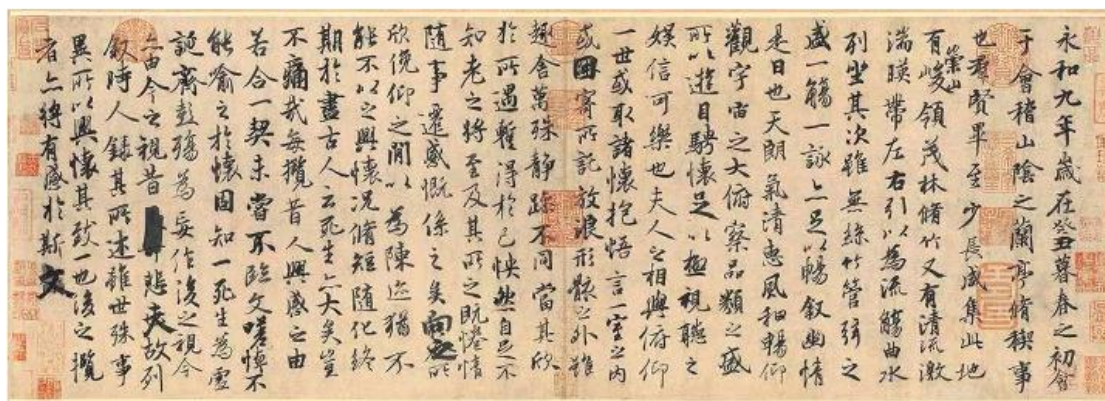 永和九年歲在癸丑暮春之初會
于會稽山陰之蘭亭脩禊事
也羣賢畢至少長咸集此地
有崇山峻領茂林脩竹又有清流激
湍暎帶左右引以為流觴曲水
列坐其次雖無絲竹管弦之
盛一觴一詠亦足以暢敘幽情
是日也天朗氣清惠風和暢仰
觀宇宙之大俯察品類之盛
所以遊目騁懷足以極視聽之
娛信可樂也夫人之相與俯仰
一世或取諸懷抱悟言一室之內
或因寄所託放浪形骸之外雖
趣舍萬殊靜躁不同當其欣
於所遇蹔得於己怏然自足不
知老之將至及其所之既惓情
隨事遷感慨係之矣向之所
欣俛仰之閒以為陳迹猶不
能不以之興懷況脩短隨化終
期於盡古人云死生亦大矣豈
不痛哉每攬昔人興感之由
若合一契未嘗不臨文嗟悼不
能喻之於懷固知一死生為虛
誕齊彭殤為妄作後之視今
亦由今之視昔悲夫故列
敘時人錄其所述雖世殊事
異所以興懷其致一也後之攬
者亦將有感於斯文